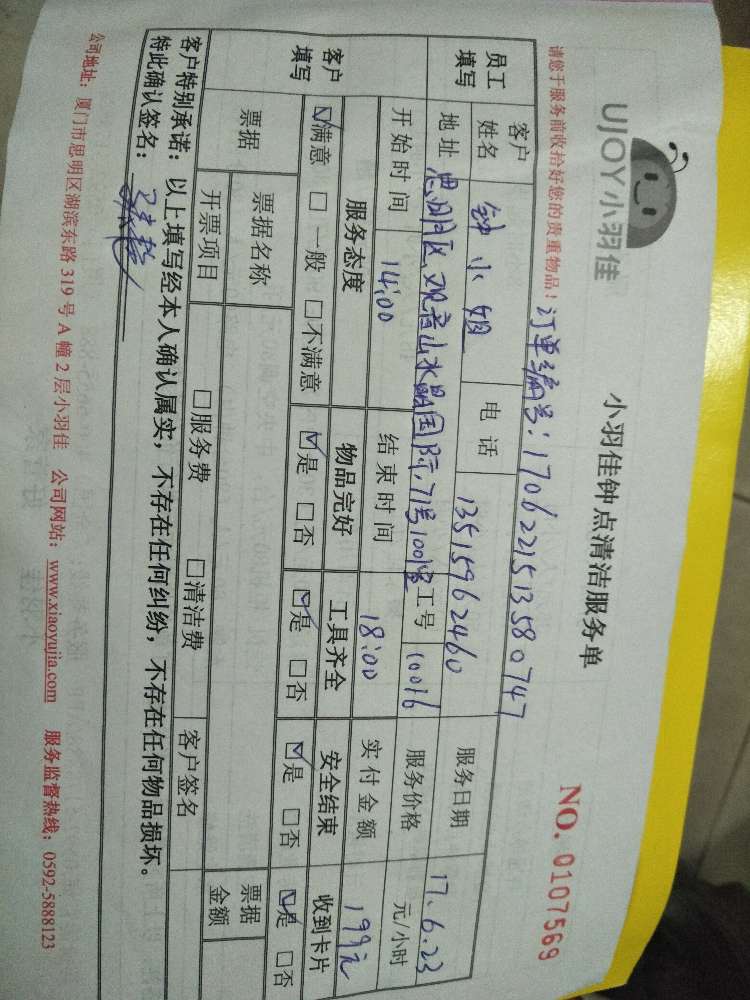 UJOY小羽佳
小羽佳钟点清洁服务单
NO. 0107569
请您于服务前收拾好您的贵重物品！
订单编号：1706221513580747
员工填写
客户姓名 钟小姐 电话 13515962460 服务日期 17.6.23
地址 思明区观音山水晶国际71号1001室 工号 10016 服务价格 元/小时
客户填写
开始时间 14:00 结束时间 18:00 实付金额 199元
服务态度 物品完好 工具齐全 安全结束 收到卡片
☑满意 □一般 □不满意 ☑是 □否 ☑是 □否 ☑是 □否 ☑是 □否
票据 票据名称 票据金额
开票项目 □服务费 □清洁费 客户签名
客户特别承诺：以上填写经本人确认属实，不存在任何纠纷，不存在任何物品损坏。
特此确认签名：
公司地址：厦门市思明区湖滨东路 319 号 A 幢 2 层小羽佳 公司网站：www.xiaoyujia.com 服务监督热线：0592-5888123